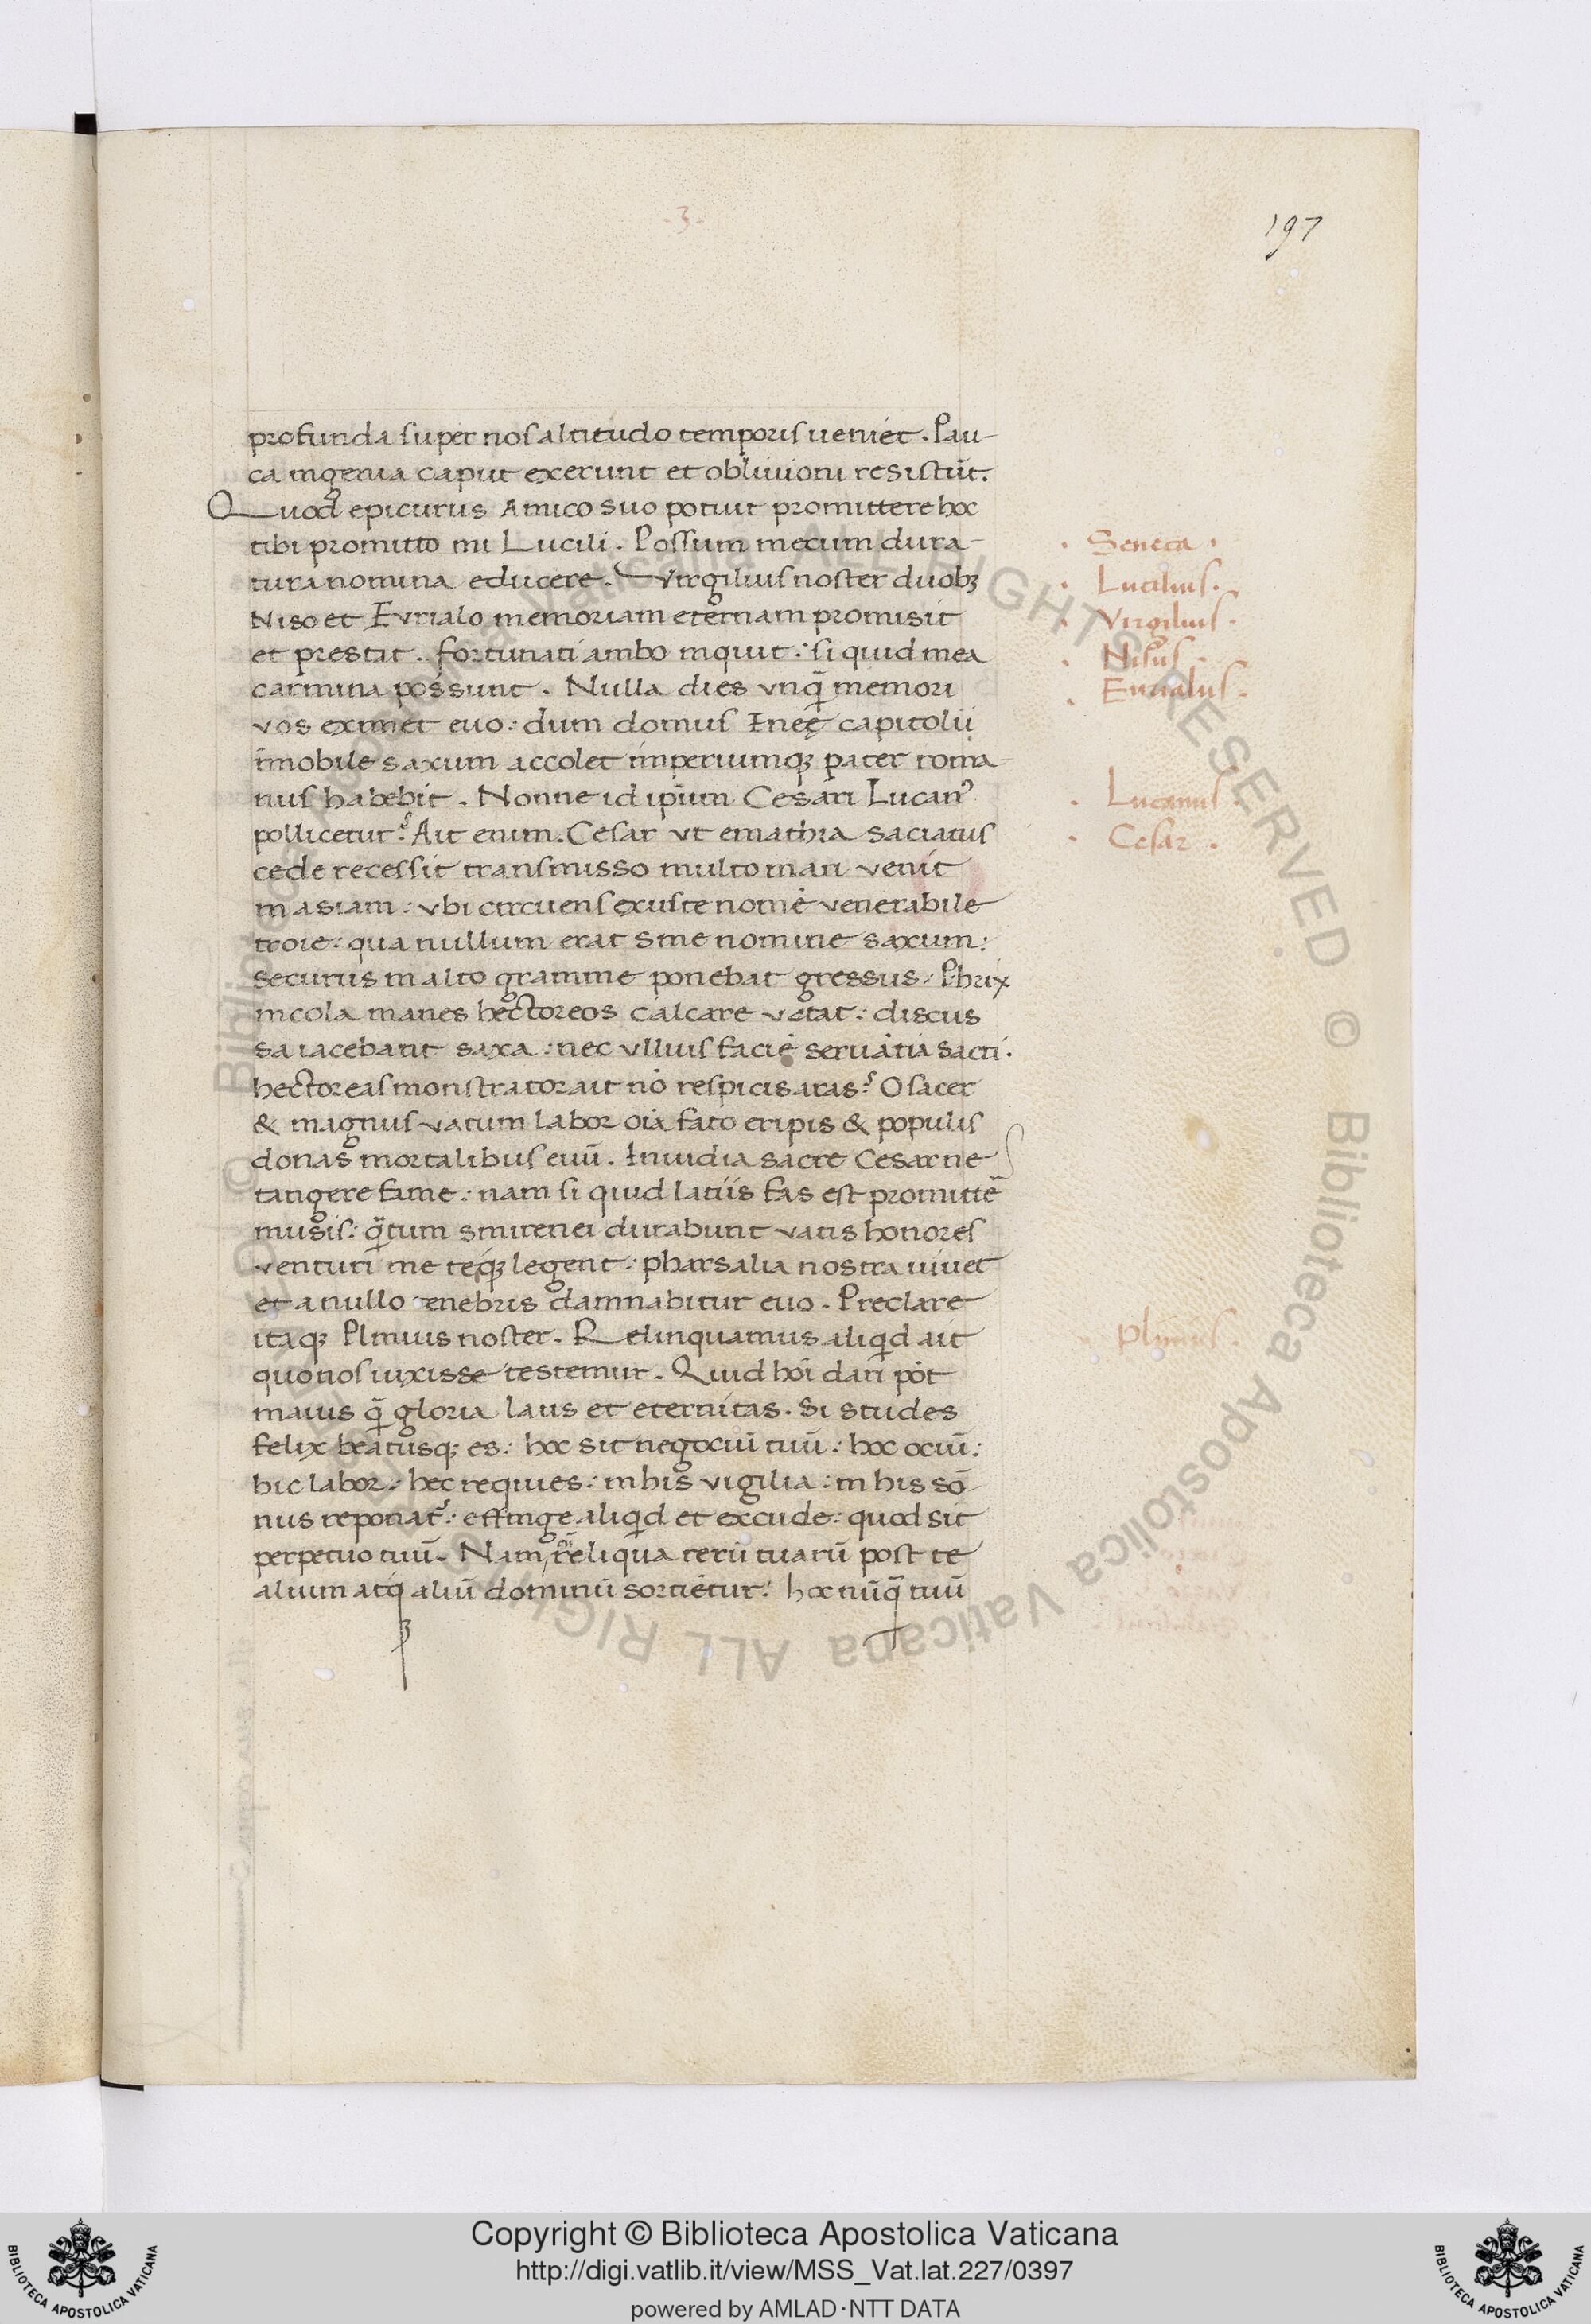 .3.
197
profunda super nos altitudo temporis ueniet. Pau-
ca ingenia caput exerunt et obliuioni resistūt.
Quod epicurus Amico suo potuit promittere hoc
tibi promitto mi Lucili. Possum mecum dura-
tura nomina educere. Virgilius noster duobꝫ
Niso et Eurialo memoriam eternam promisit
et prestit. fortunati ambo inquit: si quid mea
carmina possunt. Nulla dies vnq̄ memori
vos eximet euo: dum domus Eneę capitolii
īmobile saxum accolet imperiumqꝫ pater roma-
nus habebit. Nonne id ip̄um Cesari Lucanꝰ
pollicetur? Ait enim. Cesar vt emathia saciatus
cede recessit transmisso multo mari venit
in asiam: vbi circuens exuste nomē venerabile
troie: qua nullum erat sine nomine saxum:
securus in alto gramine ponebat gressus: Phrix
incola manes hectoreos calcare vetat: discus
sa iacebant saxa: nec vllius faciē seruātia sacri.
hectoreas monstrator ait nō respicis aras? O sacer
& magnus vatum labor oīa fato eripis & populis
donas mortalibus euū. Inuidia sacre Cesar ne
tangere fame: nam si quid latiis fas est promittē
musis: q̄tum smirenei durabunt vatis honores
venturi me teqꝫ legent: pharsalia nostra uiuet
et a nullo tenebris damnabitur euo. Preclare
itaqꝫ Plinius noster. Relinquamus aliqid ait
quo nos uixisse testemur. Quid hōi dari pōt
maius q̄ gloria laus et eternitas. Si studes
felix beatusqꝫ es: hoc sit negociū tuū: hoc ociū:
hic labor: hec requies: in his vigilia: in his sō-
nus reponat᷑: effinge aliqid et excude: quod sit
perpetuo tuū. Nam reliqua rerū tuarū post te
alium atqꝫ aliū dominū sortietur: hoc nūq̄ tuū
. Seneca .
. Lucilius .
. Virgilius .
. Nisus .
. Eurialus .
. Lucanus .
. Cesar .
. Plinius .
Copyright © Biblioteca Apostolica Vaticana
http://digi.vatlib.it/view/MSS_Vat.lat.227/0397
powered by AMLAD·NTT DATA
BIBLIOTECA APOSTOLICA VATICANA
BIBLIOTECA APOSTOLICA VATICANA
© Biblioteca Apostolica Vaticana ALL RIGHTS RESERVED © Biblioteca Apostolica Vaticana ALL RIGHTS RESERVED